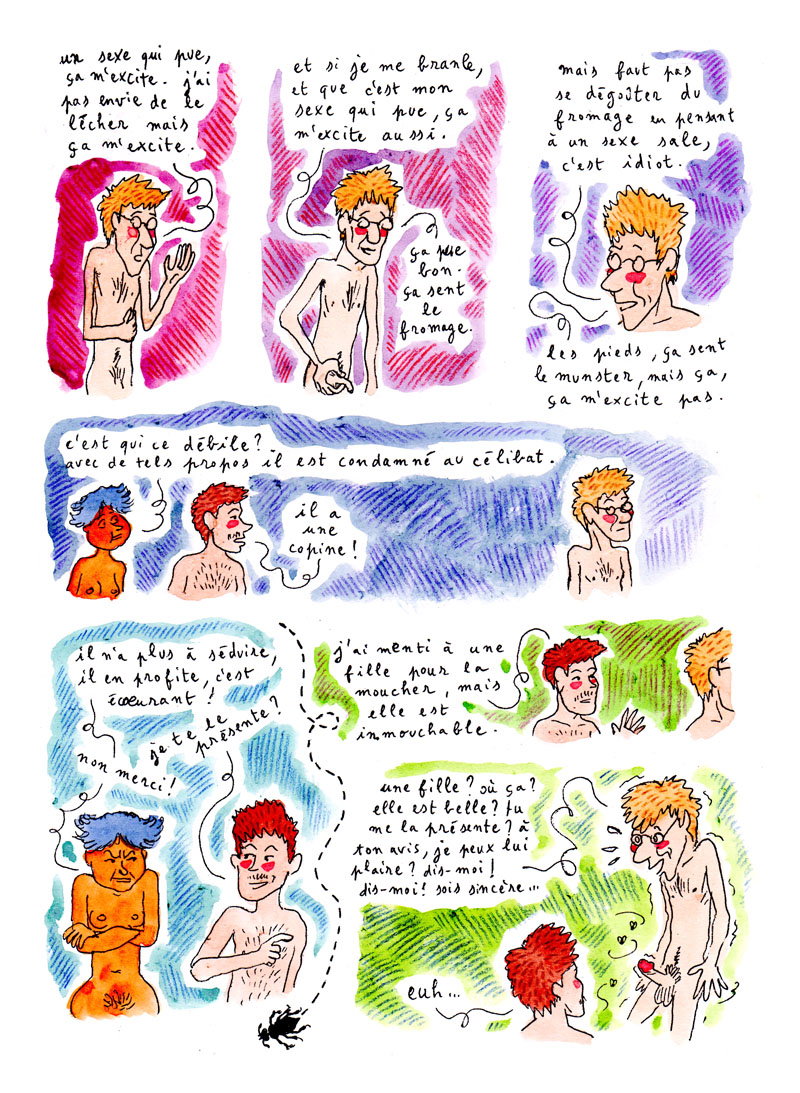 un sexe qui pue,
ça m'excite. j'ai
pas envie de le
lêcher mais
ça m'excite.
et si je me branle,
et que c'est mon
sexe qui pue, ça
m'excite aussi.
ça pue
bon.
ça sent
le
fromage.
mais faut pas
se dégoûter du
fromage en pensant
à un sexe sale,
c'est idiot.
les pieds, ça sent
le munster, mais ça,
ça m'excite pas.
c'est qui ce débile?
avec de tels propos il est condamné au célibat.
il a
une
copine!
il n'a plus à séduire,
il en profite, c'est
écœurant!
je te le
présente?
non merci!
j'ai menti à une
fille pour la
moucher, mais
elle est
inmouchable.
une fille? où ça?
elle est belle? tu
me la présente? à
ton avis, je peux lui
plaire? dis-moi!
dis-moi! sois sincère...
euh...